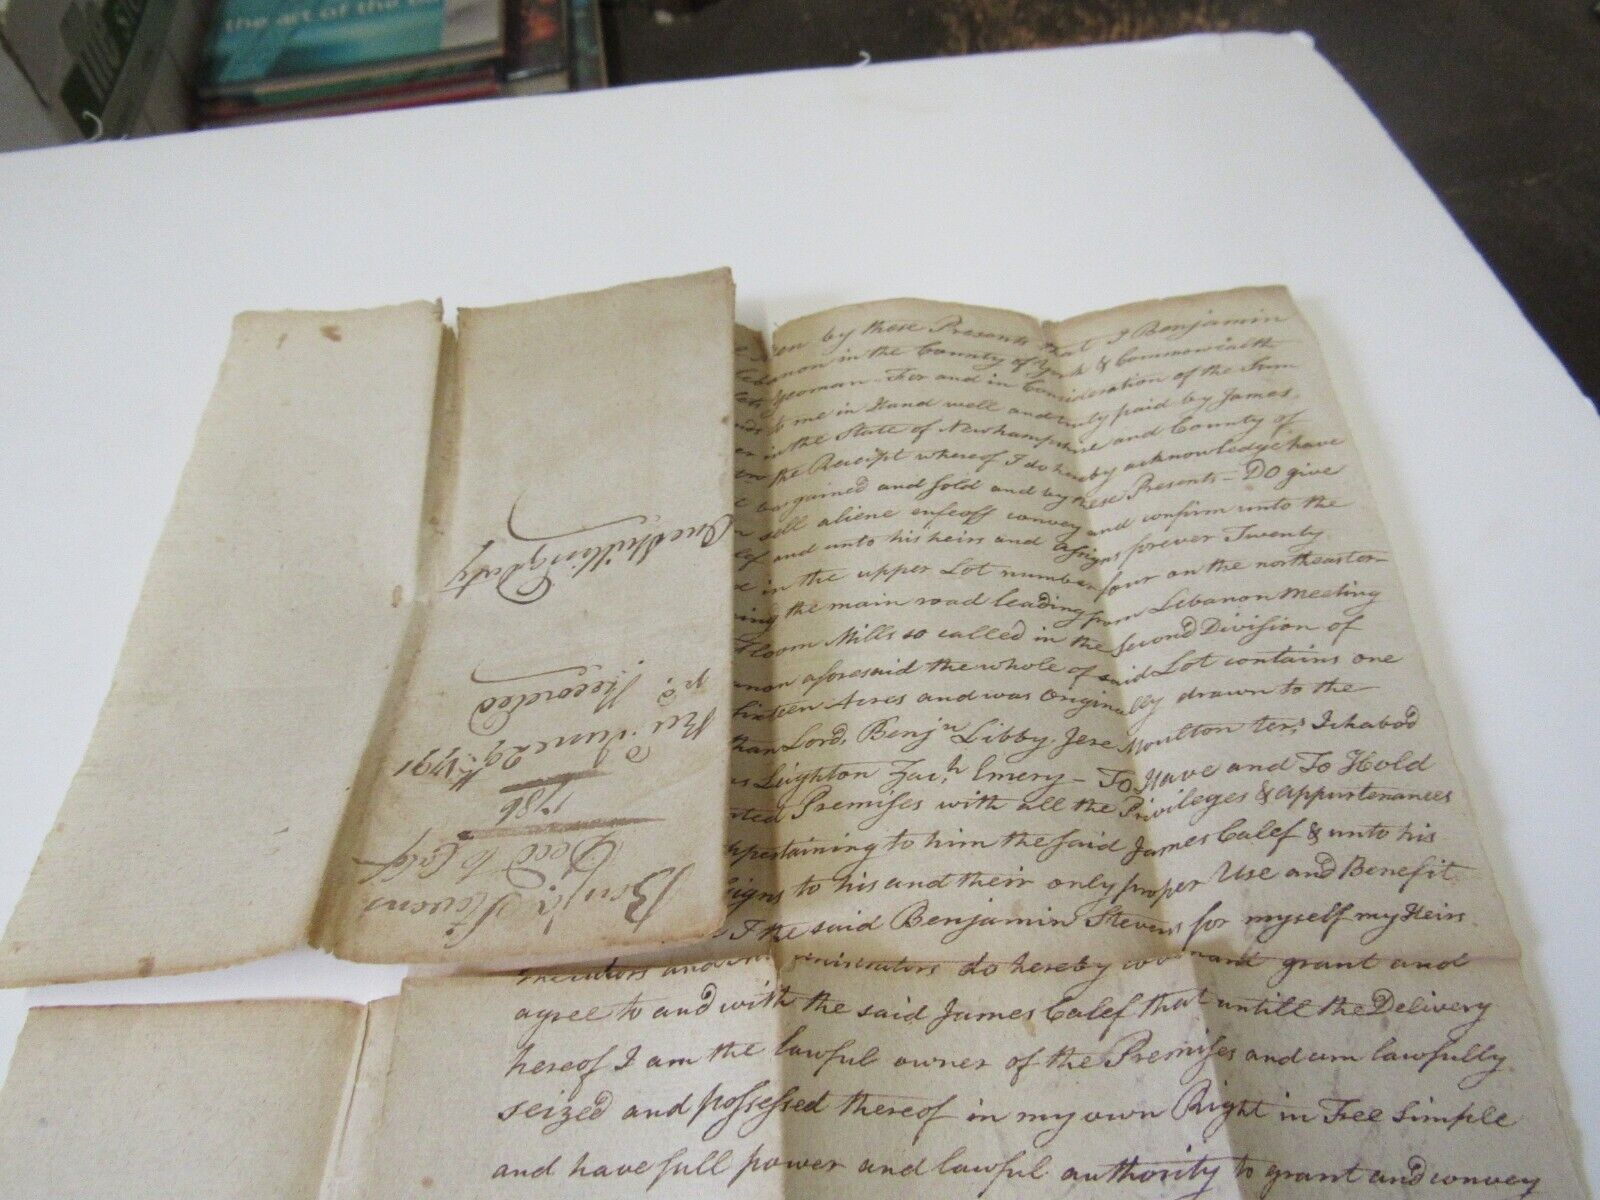 the art of the
men by these Presents that I Benjamin
banon in the County of York & Commonwealth
Yeoman For and in Consideration of the Sum
to me in Hand well and truly paid by James
in the State of Newhampshire and County of
the Receipt whereof I do hereby acknowledge have
bargained and sold and by these Presents - DO give
sell aliene enfeoff convey and confirm unto the
lef and unto his heirs and assigns forever Twenty
in the upper Lot number four on the northeaster-
ing the main road leading from Lebanon Meeting
Loom Mills so called in the Second Division of
anon aforesaid the whole of said Lot contains one
fixteen Acres and was Originally drawn to the
than Lord, Benjn Libby, Jere Moulton ters Ichabod
Leighton Zach Emery - To Have and To Hold
ted Premises with all the Privileges & appurtenances
appertaining to him the said James Calef & unto his
signs to his and their only proper Use and Benefit
I the said Benjamin Stevens for myself my Heirs
Executors and Administrators do hereby covenant grant and
agree to and with the said James Calef that untill the Delivery
hereof I am the lawful owner of the Premises and am lawfully
seized and possessed thereof in my own Right in Free Simple
and have full power and lawful authority to grant and convey
Benja Stevens
Deed to Calef
1786
Rec June 29th 1791
&
Recorded
One Shilling duty